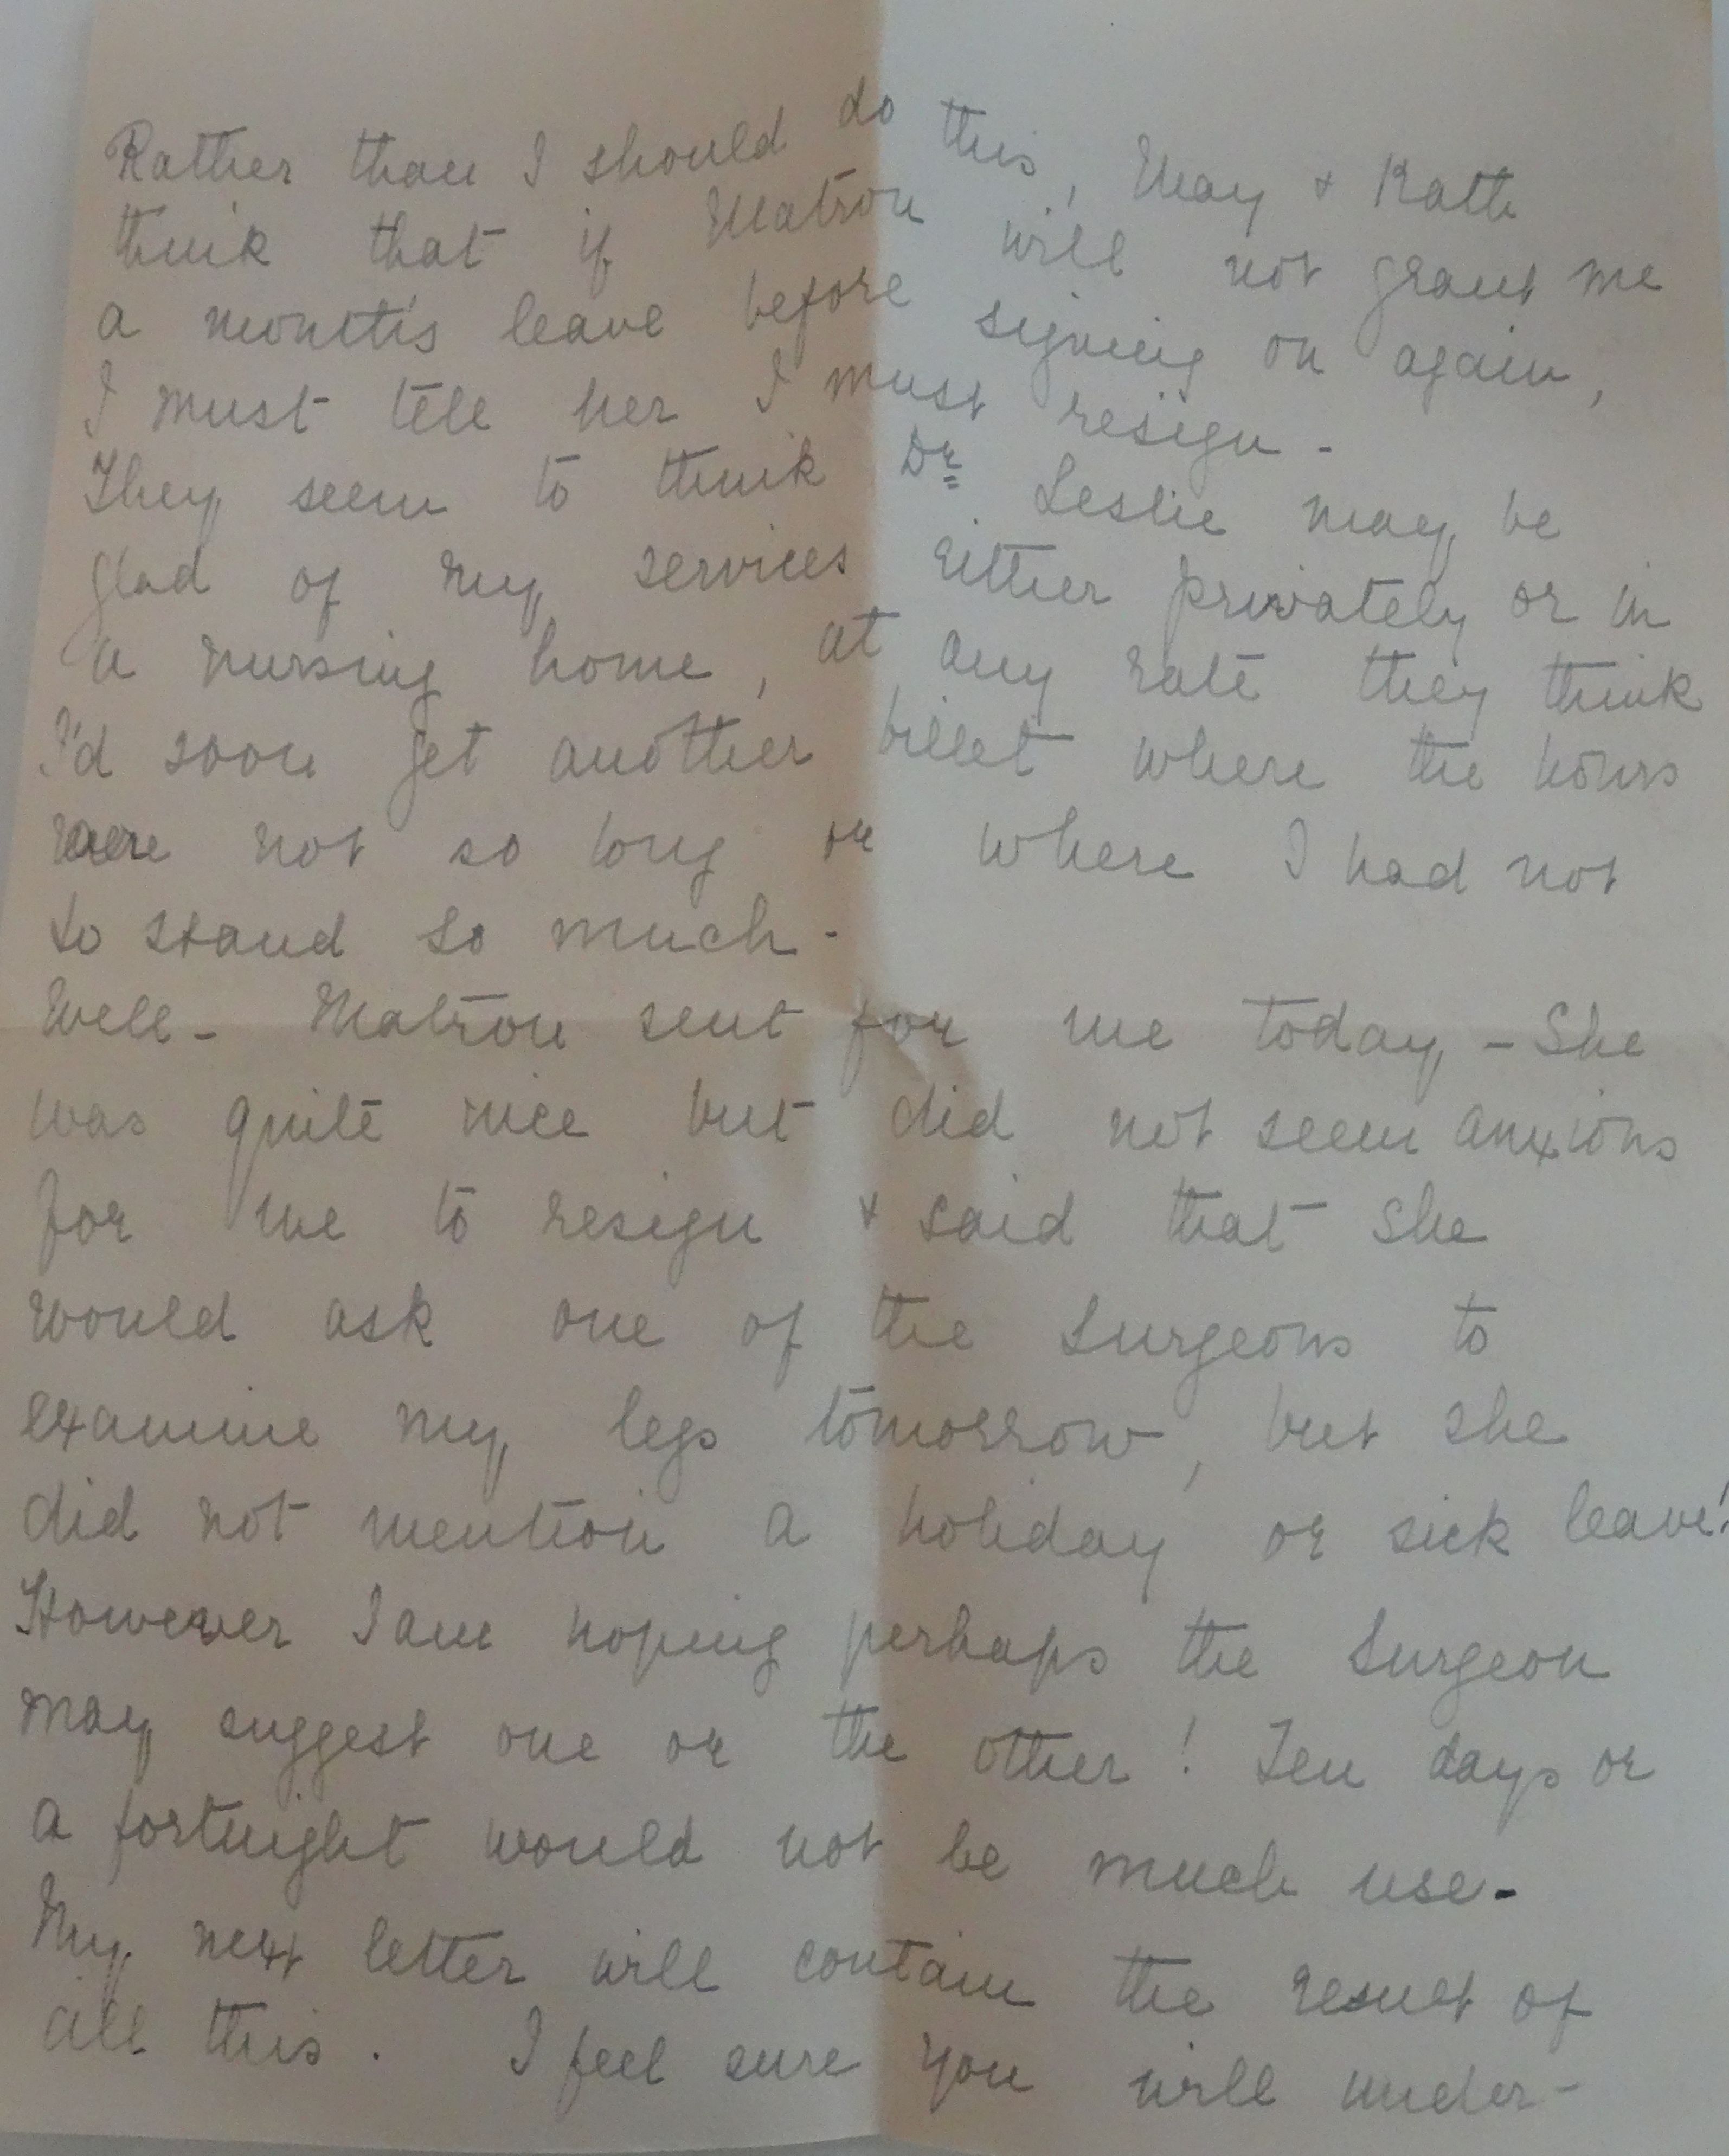 Rather than I should do this, May + Kath
think that if Matron will not grant me
a month's leave before signing on again,
I must tell her I must resign -
They seem to think Dr Leslie may be
glad of my services either privately or in
a nursing home, at any rate they think
I'd soon get another billet where the hours
were not so long or where I had not
to stand so much -
Well - Matron sent for me today - She
was quite nice but did not seem anxious
for me to resign + said that she
would ask one of the surgeons to
examine my legs tomorrow, but she
did not mention a holiday or sick leave!
However I am hoping perhaps the surgeon
may suggest one or the other! Ten days or
a fortnight would not be much use -
My next letter will contain the result of
all this. I feel sure you will under-